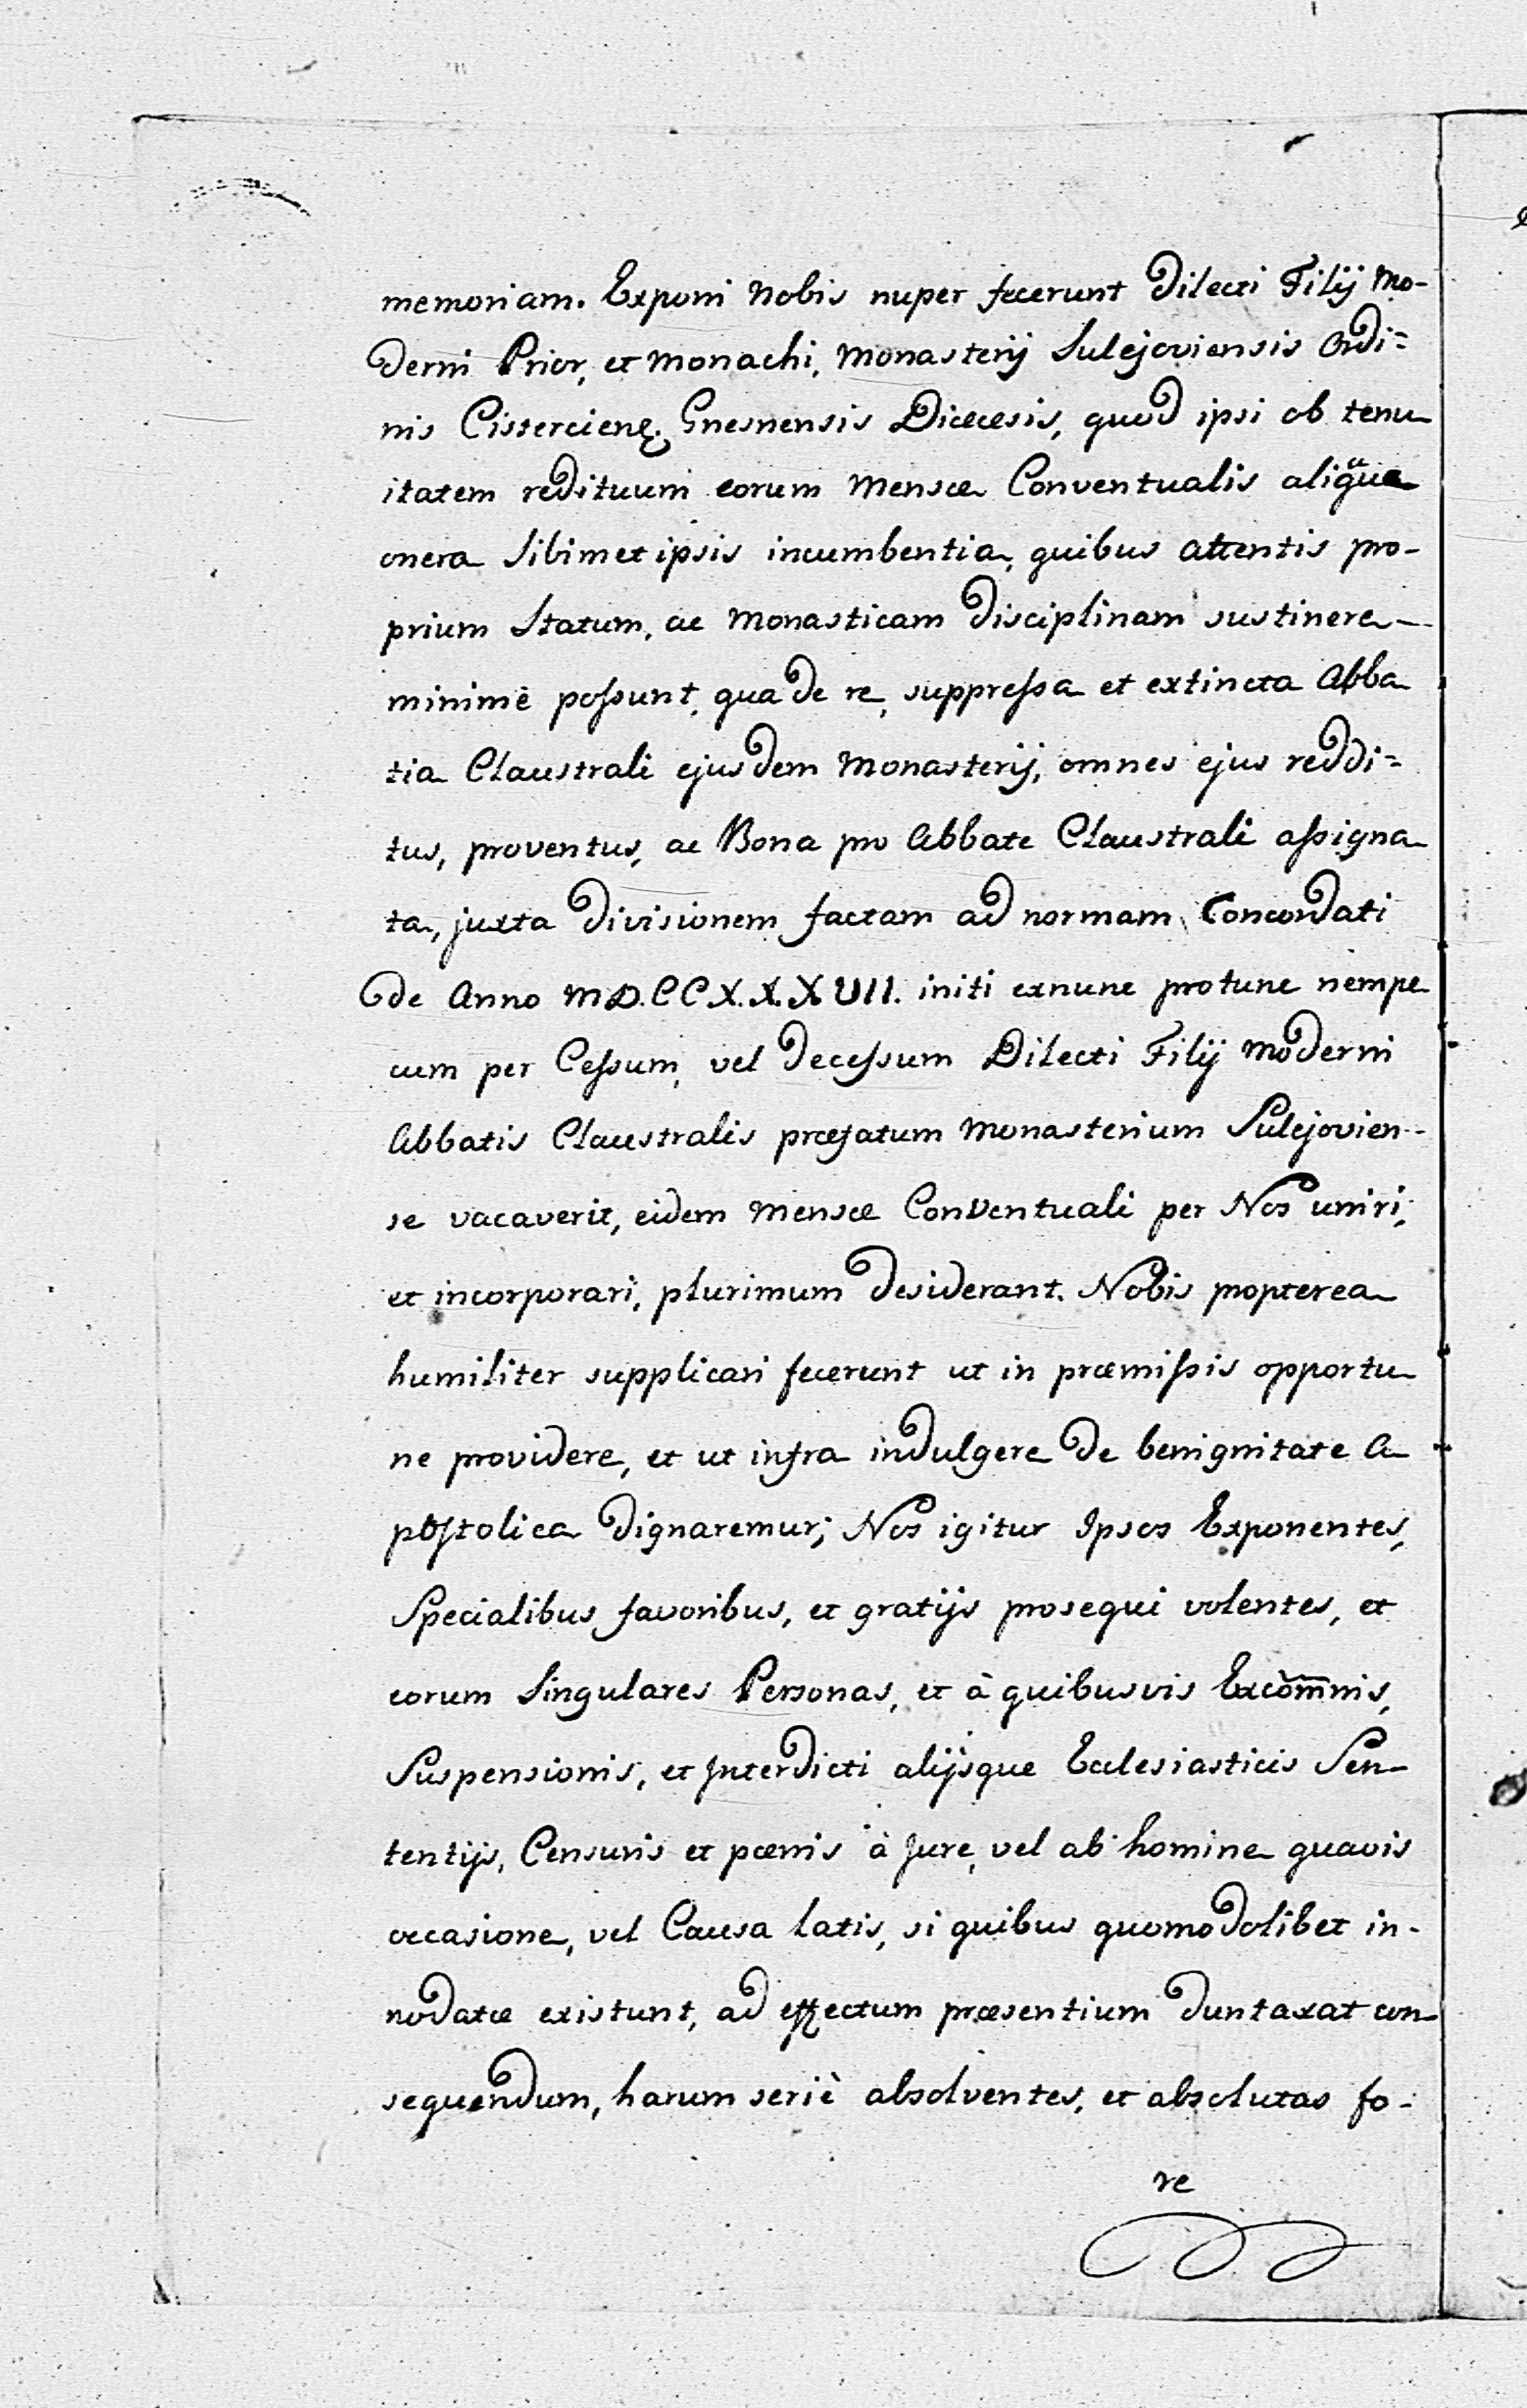 memoriam. Exponi Nobis nuper fecerunt Dilecti Filij Mo-
derni Prior, et Monachi, Monasterij Sulejoviensis Ordi=
nis Cisterciens. Gnesnensis Diœcesis, quod ipsi ob tenu
itatem redituum eorum Mensæ Conventualis aliqua
onera Sibimet ipsis incumbentia, quibus attentis pro-
prium Statum, ac Monasticam Disciplinam sustinere
minimè possunt, qua de re, suppressa et extincta Abba
tia Claustrali ejusdem Monasterij, omnes ejus reddi=
tus, proventus, ac Bona pro Abbate Claustrali assigna
ta, juxta Divisionem factam ad normam Concordati
de Anno M.D.CCX.X.XVII. initi exnunc protunc nempe
cum per Cessum, vel Decessum Dilecti Filij Moderni
Abbatis Claustralis præfatum Monasterium Sulejovien-
se vacaverit, eidem Mensæ Conventuali per Nos uniri,
et incorporari, plurimum Desiderant. Nobis propterea
humiliter supplicari fecerunt ut in præmissis opportu
ne providere, et ut infra indulgere De benignitate A
postolica Dignaremur; Nos igitur Ipsos Exponentes,
Specialibus favoribus, et gratijs prosequi volentes, et
eorum Singulares Personas, et à quibusvis Excom̃nis,
Suspensionis, et Interdicti alijsque Ecclesiasticis Sen-
tentijs, Censuris et pœnis à Jure, vel ab homine quavis
occasione, vel Causa latis, si quibus quomodolibet in-
nodatæ existunt, ad effectum præsentium Duntaxat con-
sequendum, harum seriè absolventes, et absolutas fo-
re